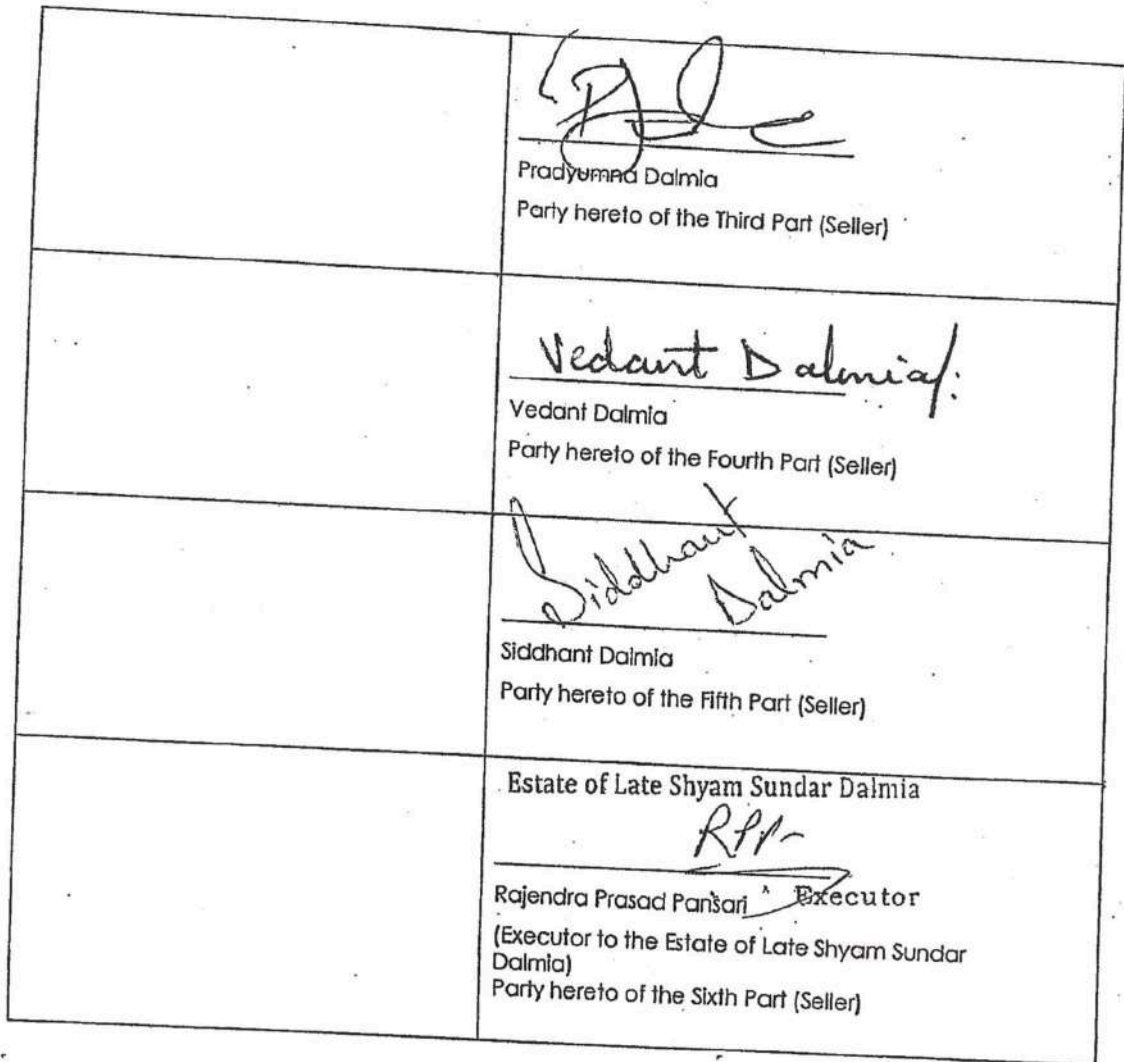 Pradyumna Dalmia
Party hereto of the Third Part (Seller)
Vedant Dalmia
Vedant Dalmia
Party hereto of the Fourth Part (Seller)
Siddhant
Dalmia
Siddhant Dalmia
Party hereto of the Fifth Part (Seller)
Estate of Late Shyam Sundar Dalmia
Rajendra Prasad Pansari Executor
(Executor to the Estate of Late Shyam Sundar
Dalmia)
Party hereto of the Sixth Part (Seller)